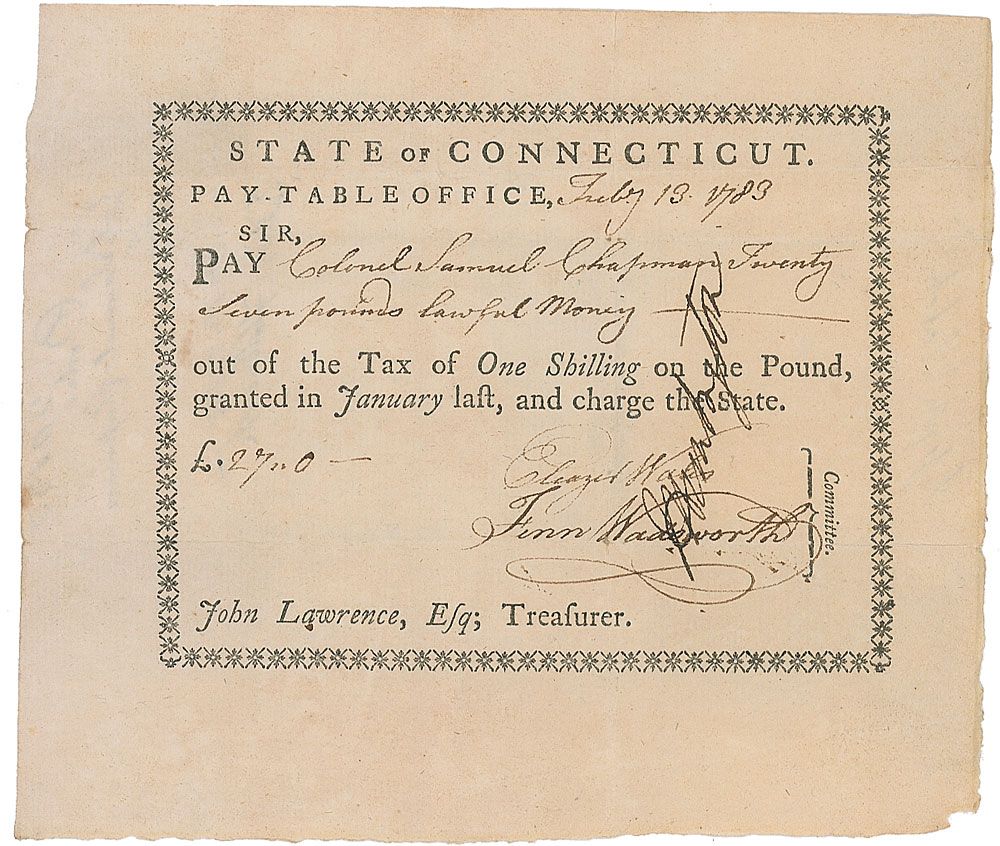 STATE OF CONNECTICUT.
PAY-TABLE OFFICE, Feby 13. 1783
SIR,
PAY Colonel Samuel Chapman Twenty
Seven pounds lawful Money
out of the Tax of One Shilling on the Pound,
granted in January laſt, and charge the State.
£. 27 " 0
Eleazer Wales
Fenn Wadsworth
Committee.
John Lawrence, Eſq; Treaſurer.